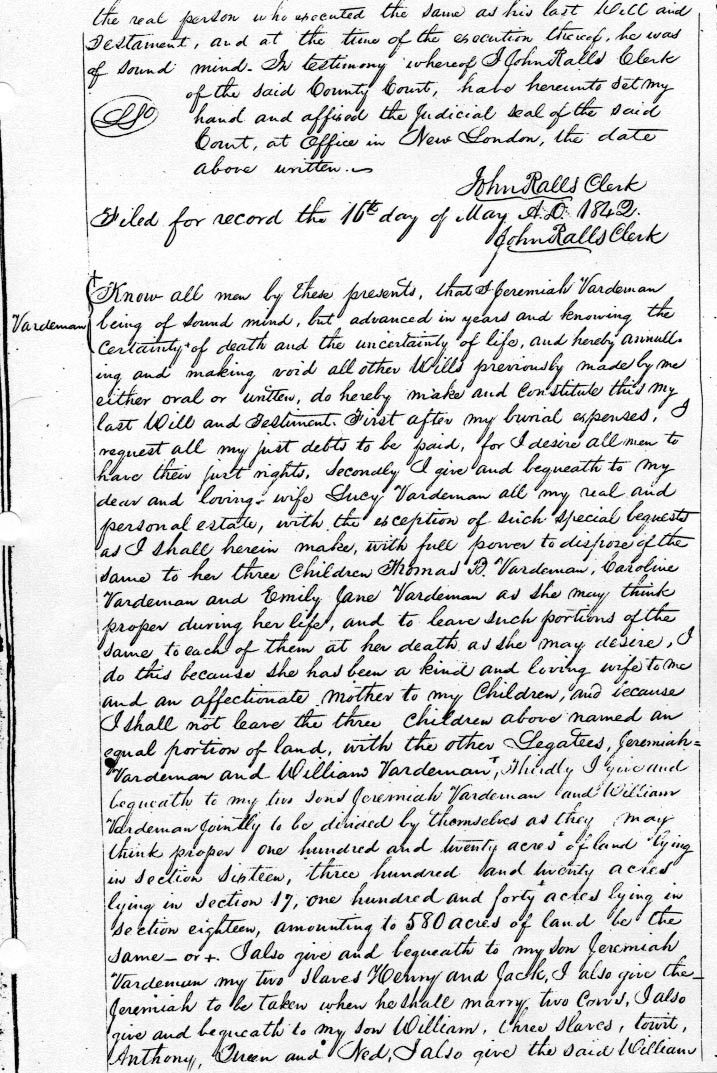 the real person who executed the same as his last Will and
Testament, and at the time of the execution thereof, he was
of sound mind. In testimony whereof I John Ralls Clerk
of the said County Court, have hereunto set my
hand and affixed the Judicial seal of the said
Court, at Office in New London, the date
above written.
John Ralls Clerk
Filed for record the 16th day of May A.D. 1842.
John Ralls Clerk
Vardeman
Know all men by these presents, that I Jeremiah Vardeman
being of sound mind, but advanced in years and knowing the
certainty of death and the uncertainty of life, and hereby annull-
ing and making void all other Wills previously made by me
either oral or written, do hereby make and constitute this my
last Will and Testiment. First after my burial expenses, I
request all my just debts to be paid, for I desire all men to
have their just rights, Secondly I give and bequeath to my
dear and loving wife Lucy Vardeman all my real and
personal estate, with the exception of such special bequests
as I shall herein make, with full power to dispose of the
same to her three Children Thomas B. Vardeman, Caroline
Vardeman and Emily Jane Vardeman as she may think
proper during her life, and to leave such portions of the
same to each of them at her death as she may desire, I
do this because she has been a kind and loving wife to me
and an affectionate mother to my Children, and because
I shall not leave the three children above named an
equal portion of land, with the other Legatees, Jeremiah=
Vardeman and William Vardeman, Thirdly I give and
bequeath to my two sons Jeremiah Vardeman and William
Vardeman jointly to be divided by themselves as they may
think proper one hundred and twenty acres of land lying
in section sixteen, three hundred and twenty acres
lying in section 17, one hundred and forty acres lying in
section eighteen, amounting to 580 acres of land be the
same - or +. I also give and bequeath to my son Jeremiah
Vardeman my two slaves Henry and Jack, I also give the
Jeremiah to be taken when he shall marry, two Cows, I also
give and bequeath to my son William, three slaves, towit,
Anthony, Queen and Ned, I also give the said William